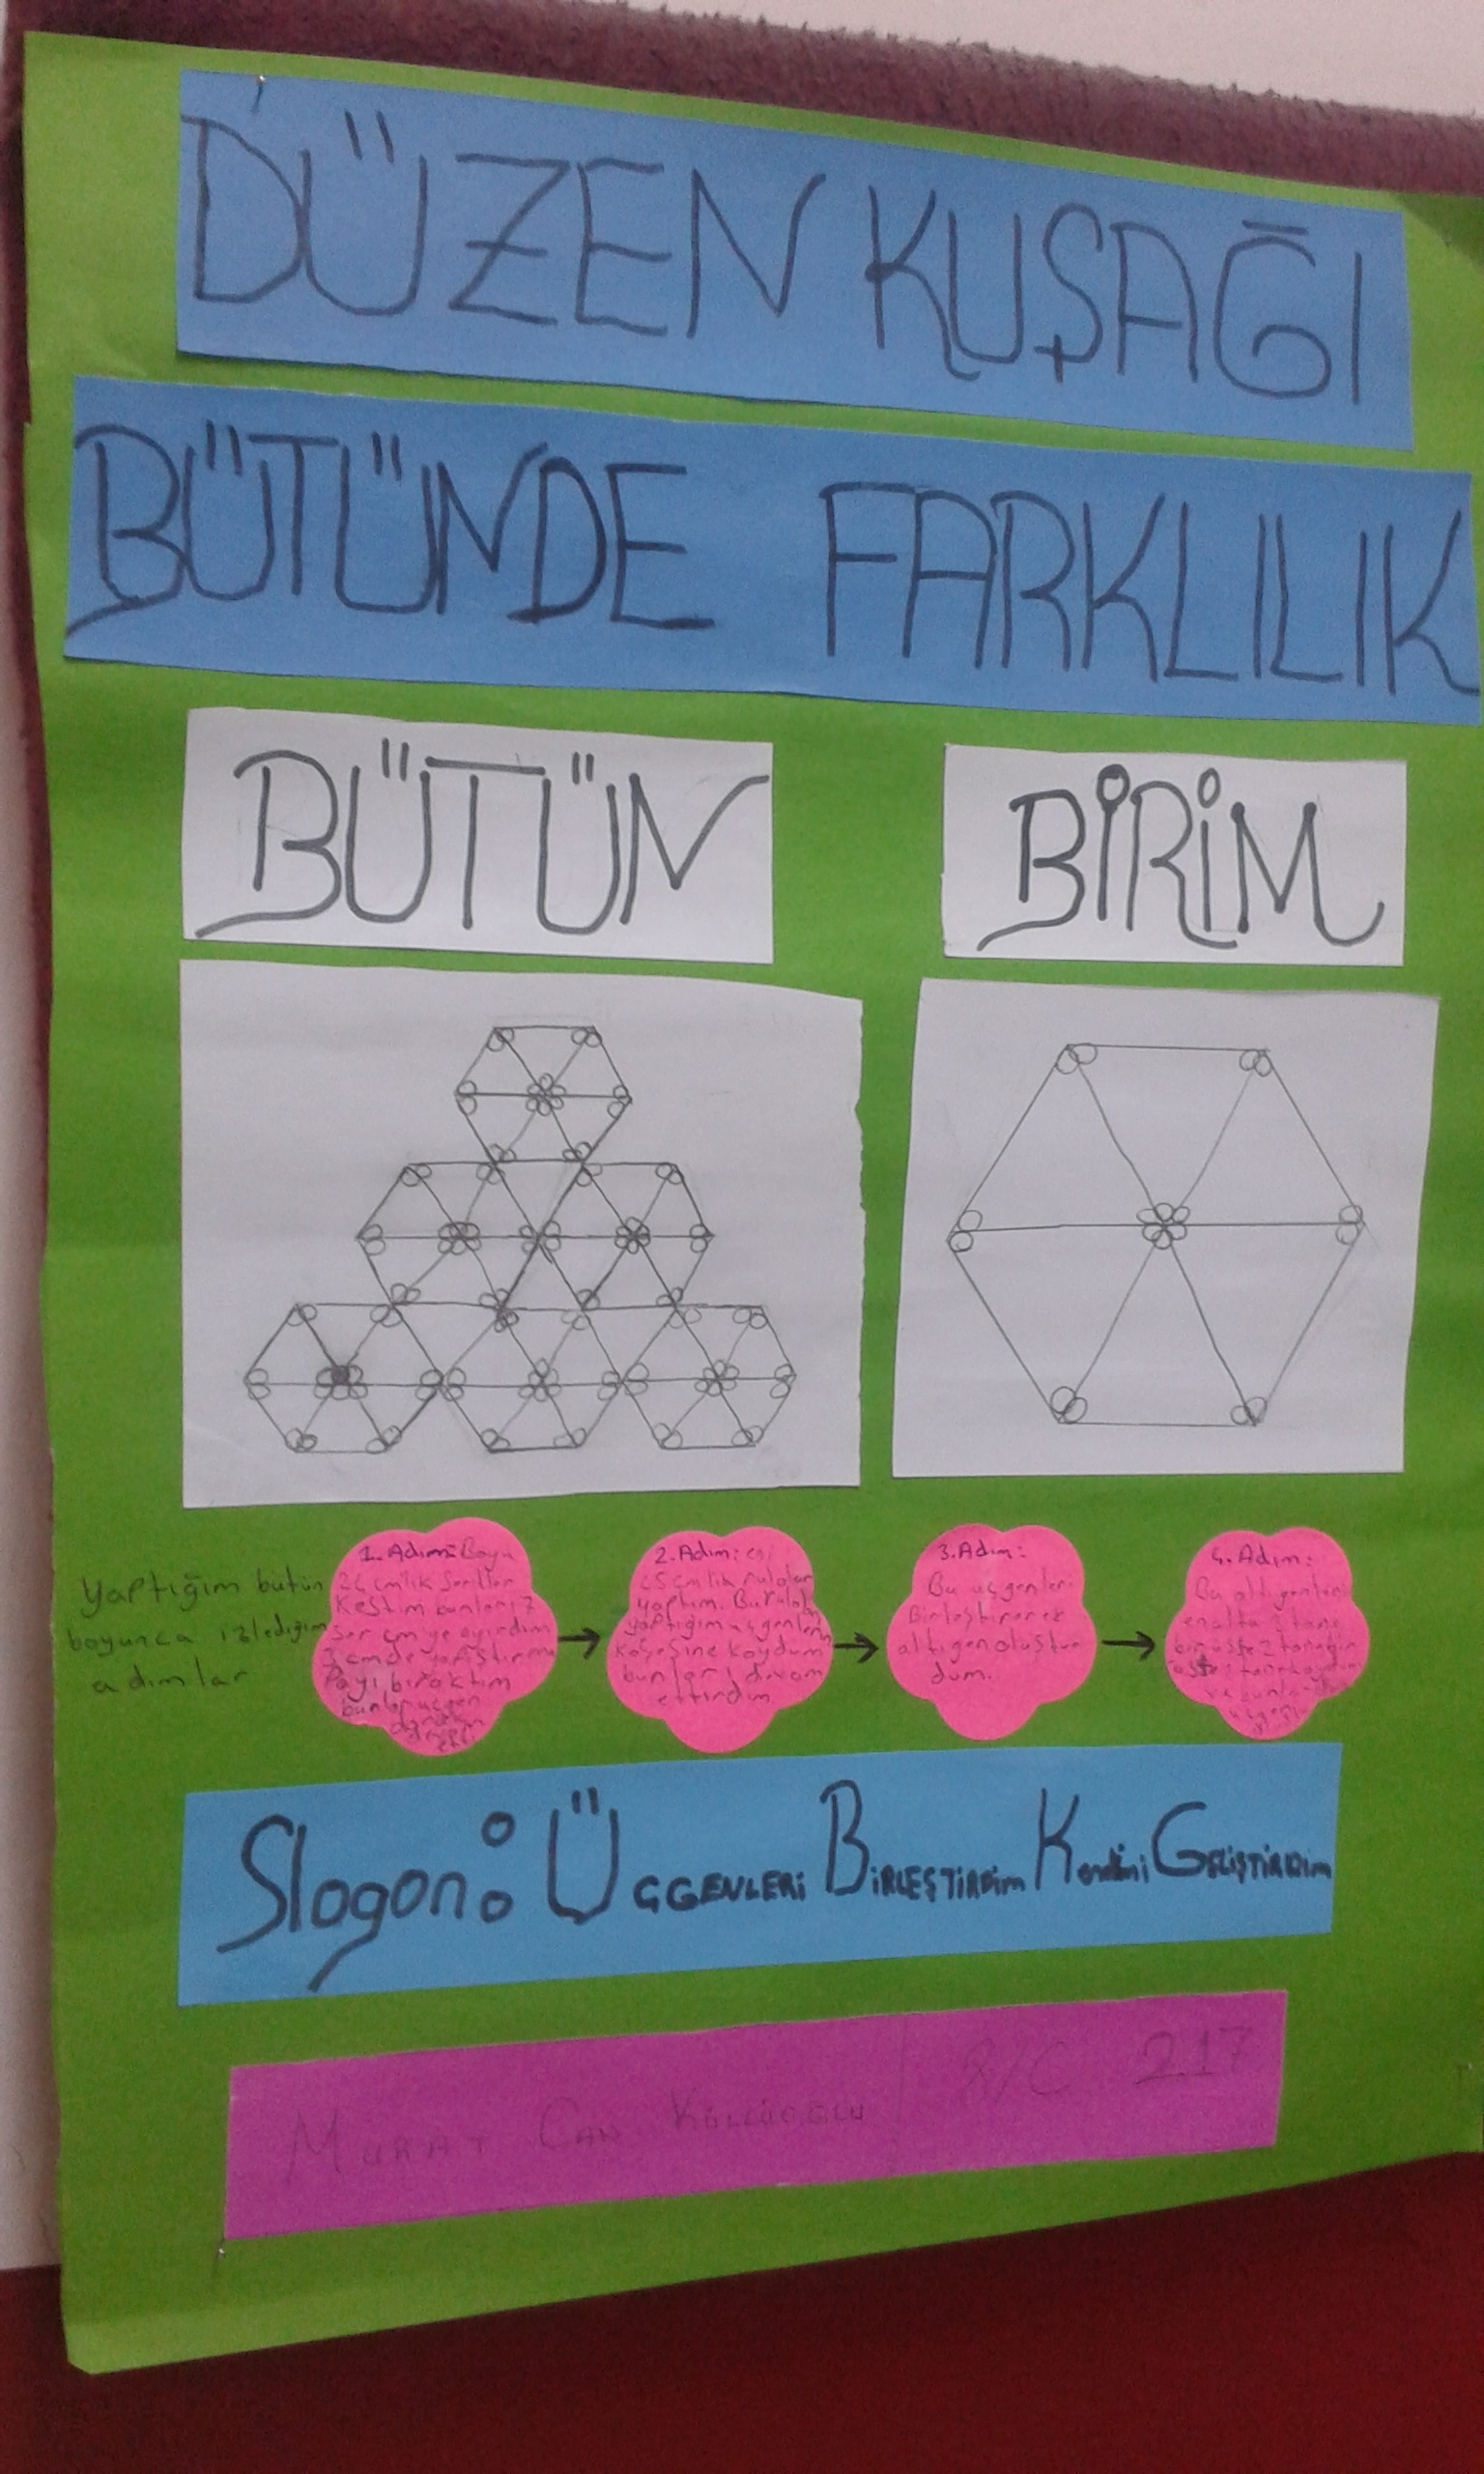 DÜZEN KUŞAĞI
BÜTÜNDE FARKLILIK
BÜTÜN
BİRİM
Yaptığım bütün
boyunca izlediğim
adımlar
1. Adım: Boyu
24 cmlik şeritler
kestim bunları 7
şer cm ye ayırdım
3 cmde yapıştırma
Payı bıraktım
bunları üçgen
2. Adım: eni
yaptım. Bu ruloları
yaptığım üçgenlerin
köşesine koydum
bunları devam
ettirdim
3. Adım:
Bu üçgenleri
Birleştirerek
altıgen oluştur
dum.
4. Adım:
Bu altıgenleri
en alta 3 tane
bir üste 2 tane en
üste 1 tane koydum
Slogan: ÜÇGENLERİ BİRLEŞTİRDİM Kendimi GELİŞTİRDİM
MURAT CAN 8/C 217